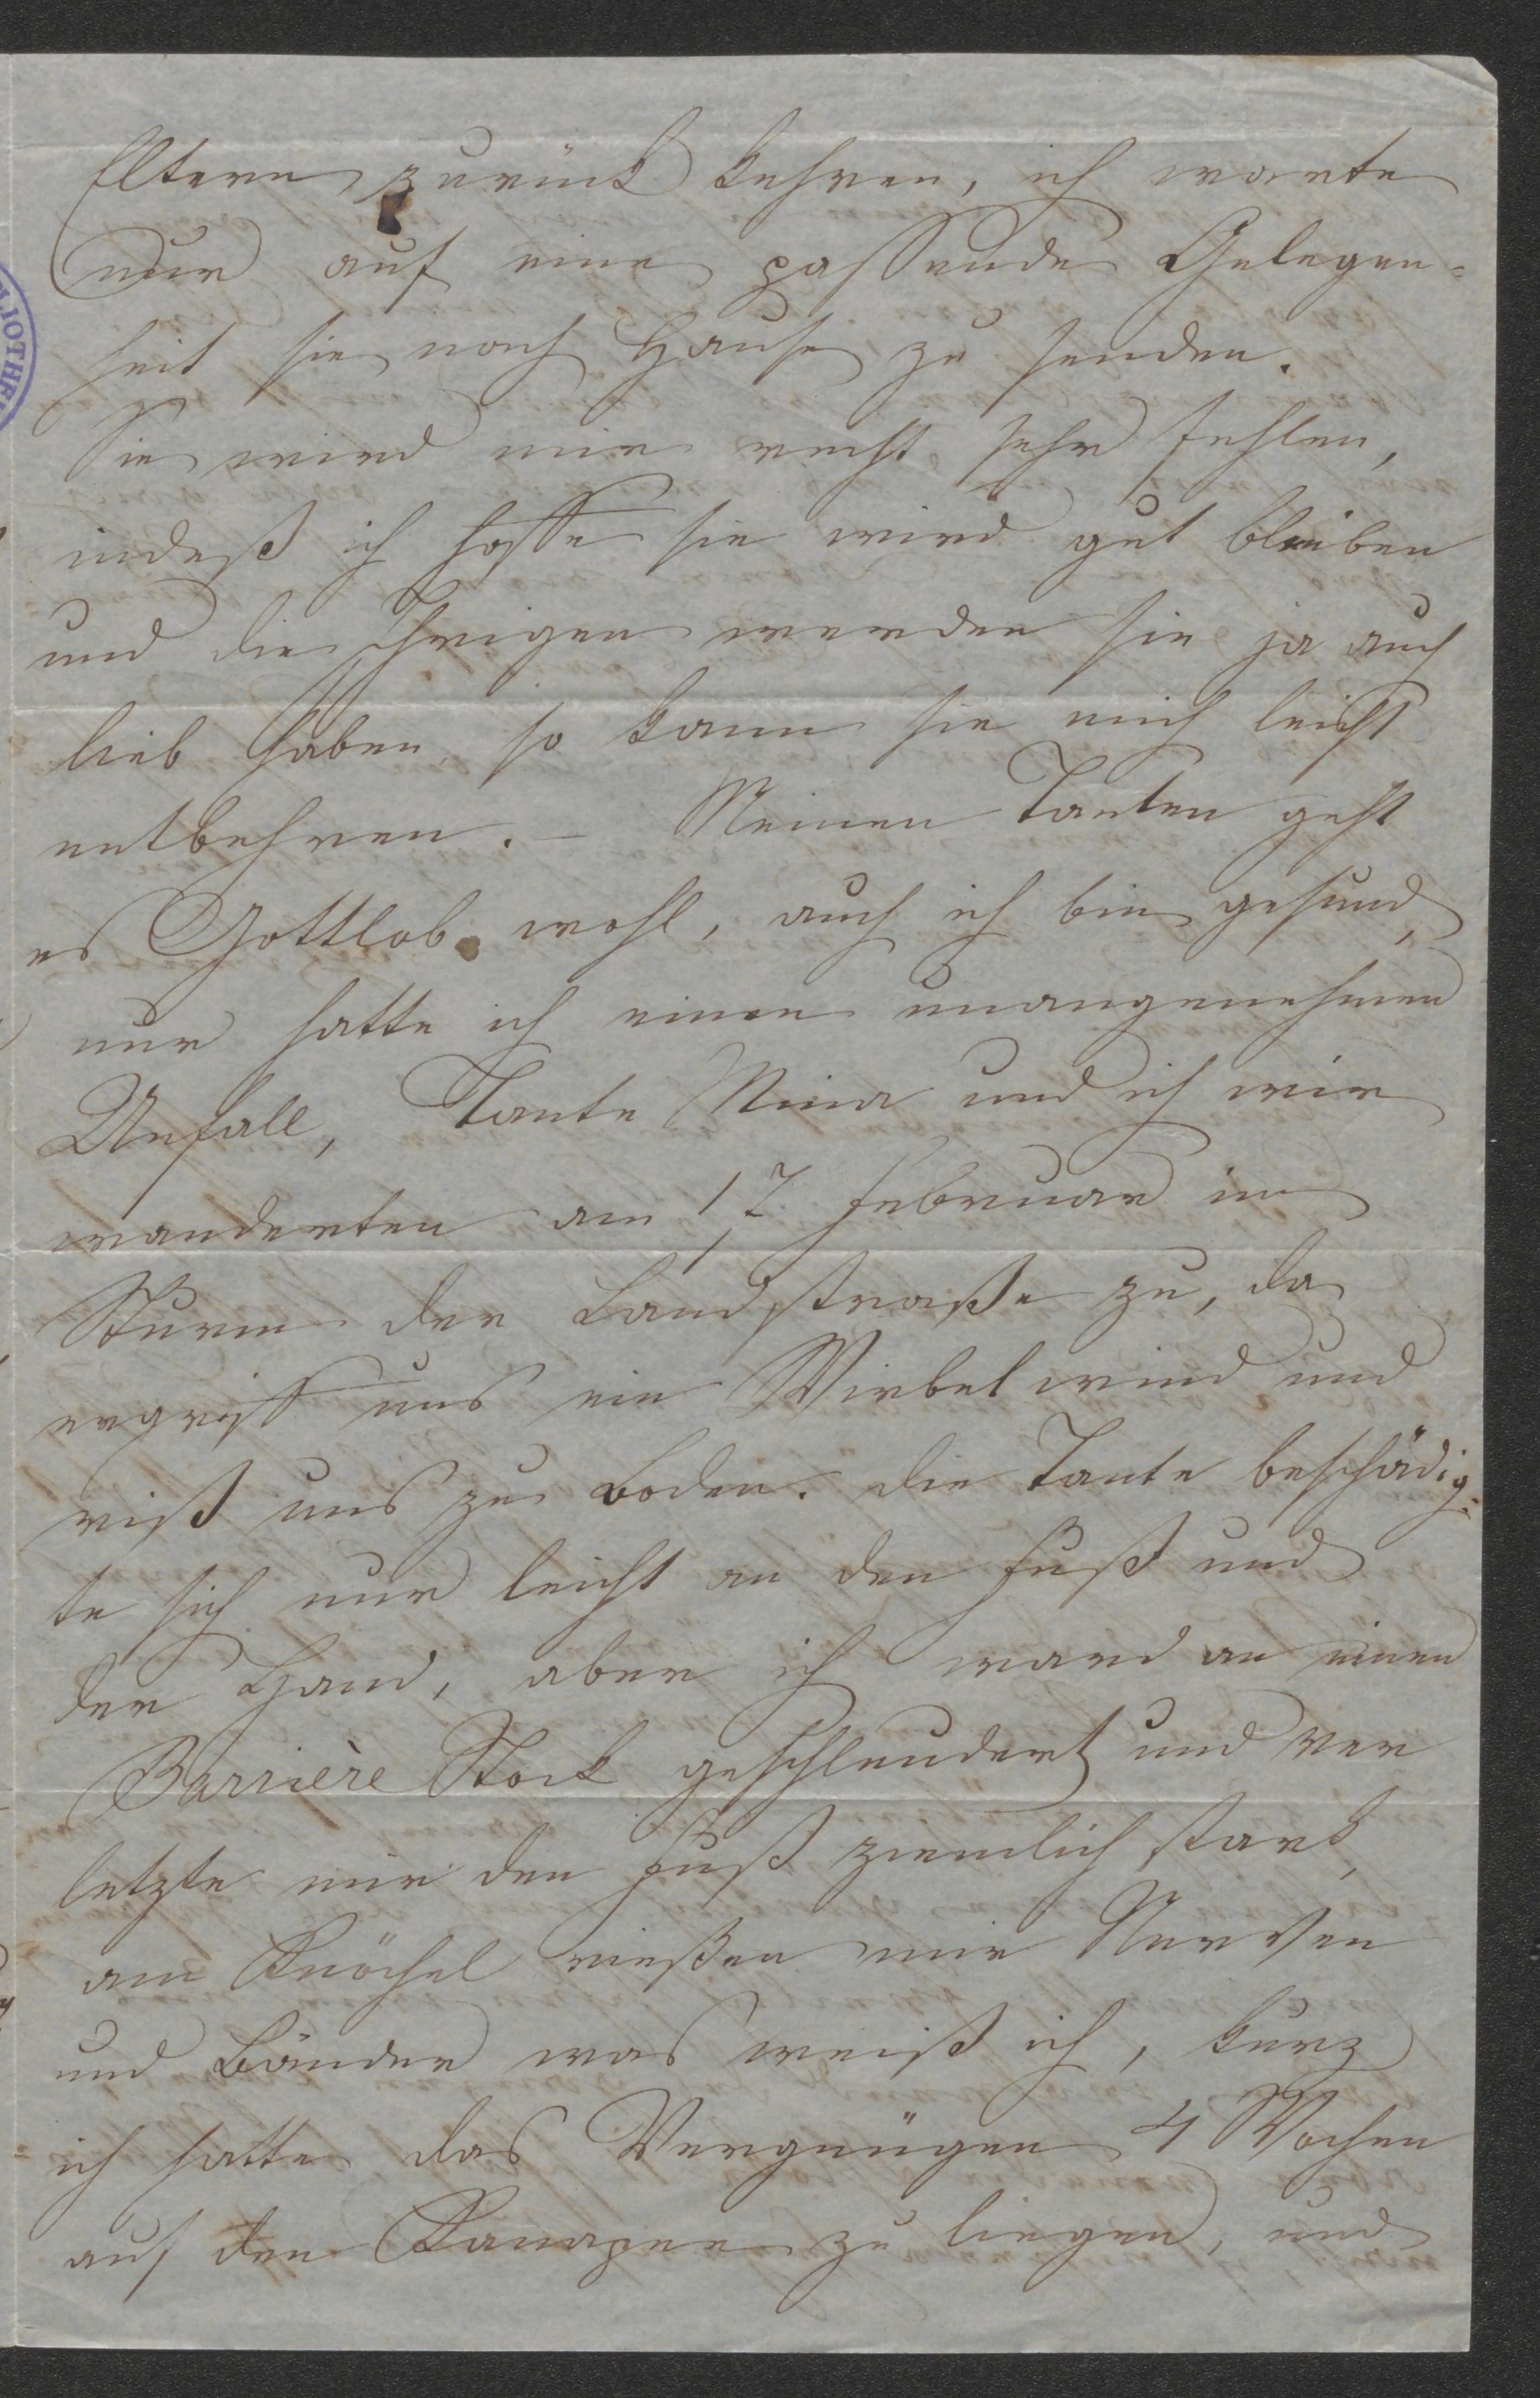 Eltern zurück kehren, ich warte
nur auf eine passende Gelegen=
heit sie nach Hause zu senden.
Sie wird mir recht sehr fehlen,
indeß ich hoffe sie wird gut bleiben
und die Ihrigen werden sie ja auch
lieb haben, so kann sie mich leicht
entbehren. – Meinen Tanten geht
es Gottlob wohl, auch ich bin gesund,
nur hatte ich einen unangenehmen
Unfall, Tante Mina und ich wir
wanderten am 17 Februar im
Sturm der Landstraße zu, da
ergriff uns ein Wirbelwind und
riß uns zu Boden. die Tante beschädig=
te sich nur leicht an den Fuß und
der Hand, aber ich ward an einen
Barrière Stock geschleudert und ver
letzte mir den Fuß ziemlich stark,
am Knöchel rießen mir Nerven
und Bänder was weiß ich, kurz
ich hatte das Vergnügen 4 Wochen
auf den Kanapee zu liegen, und